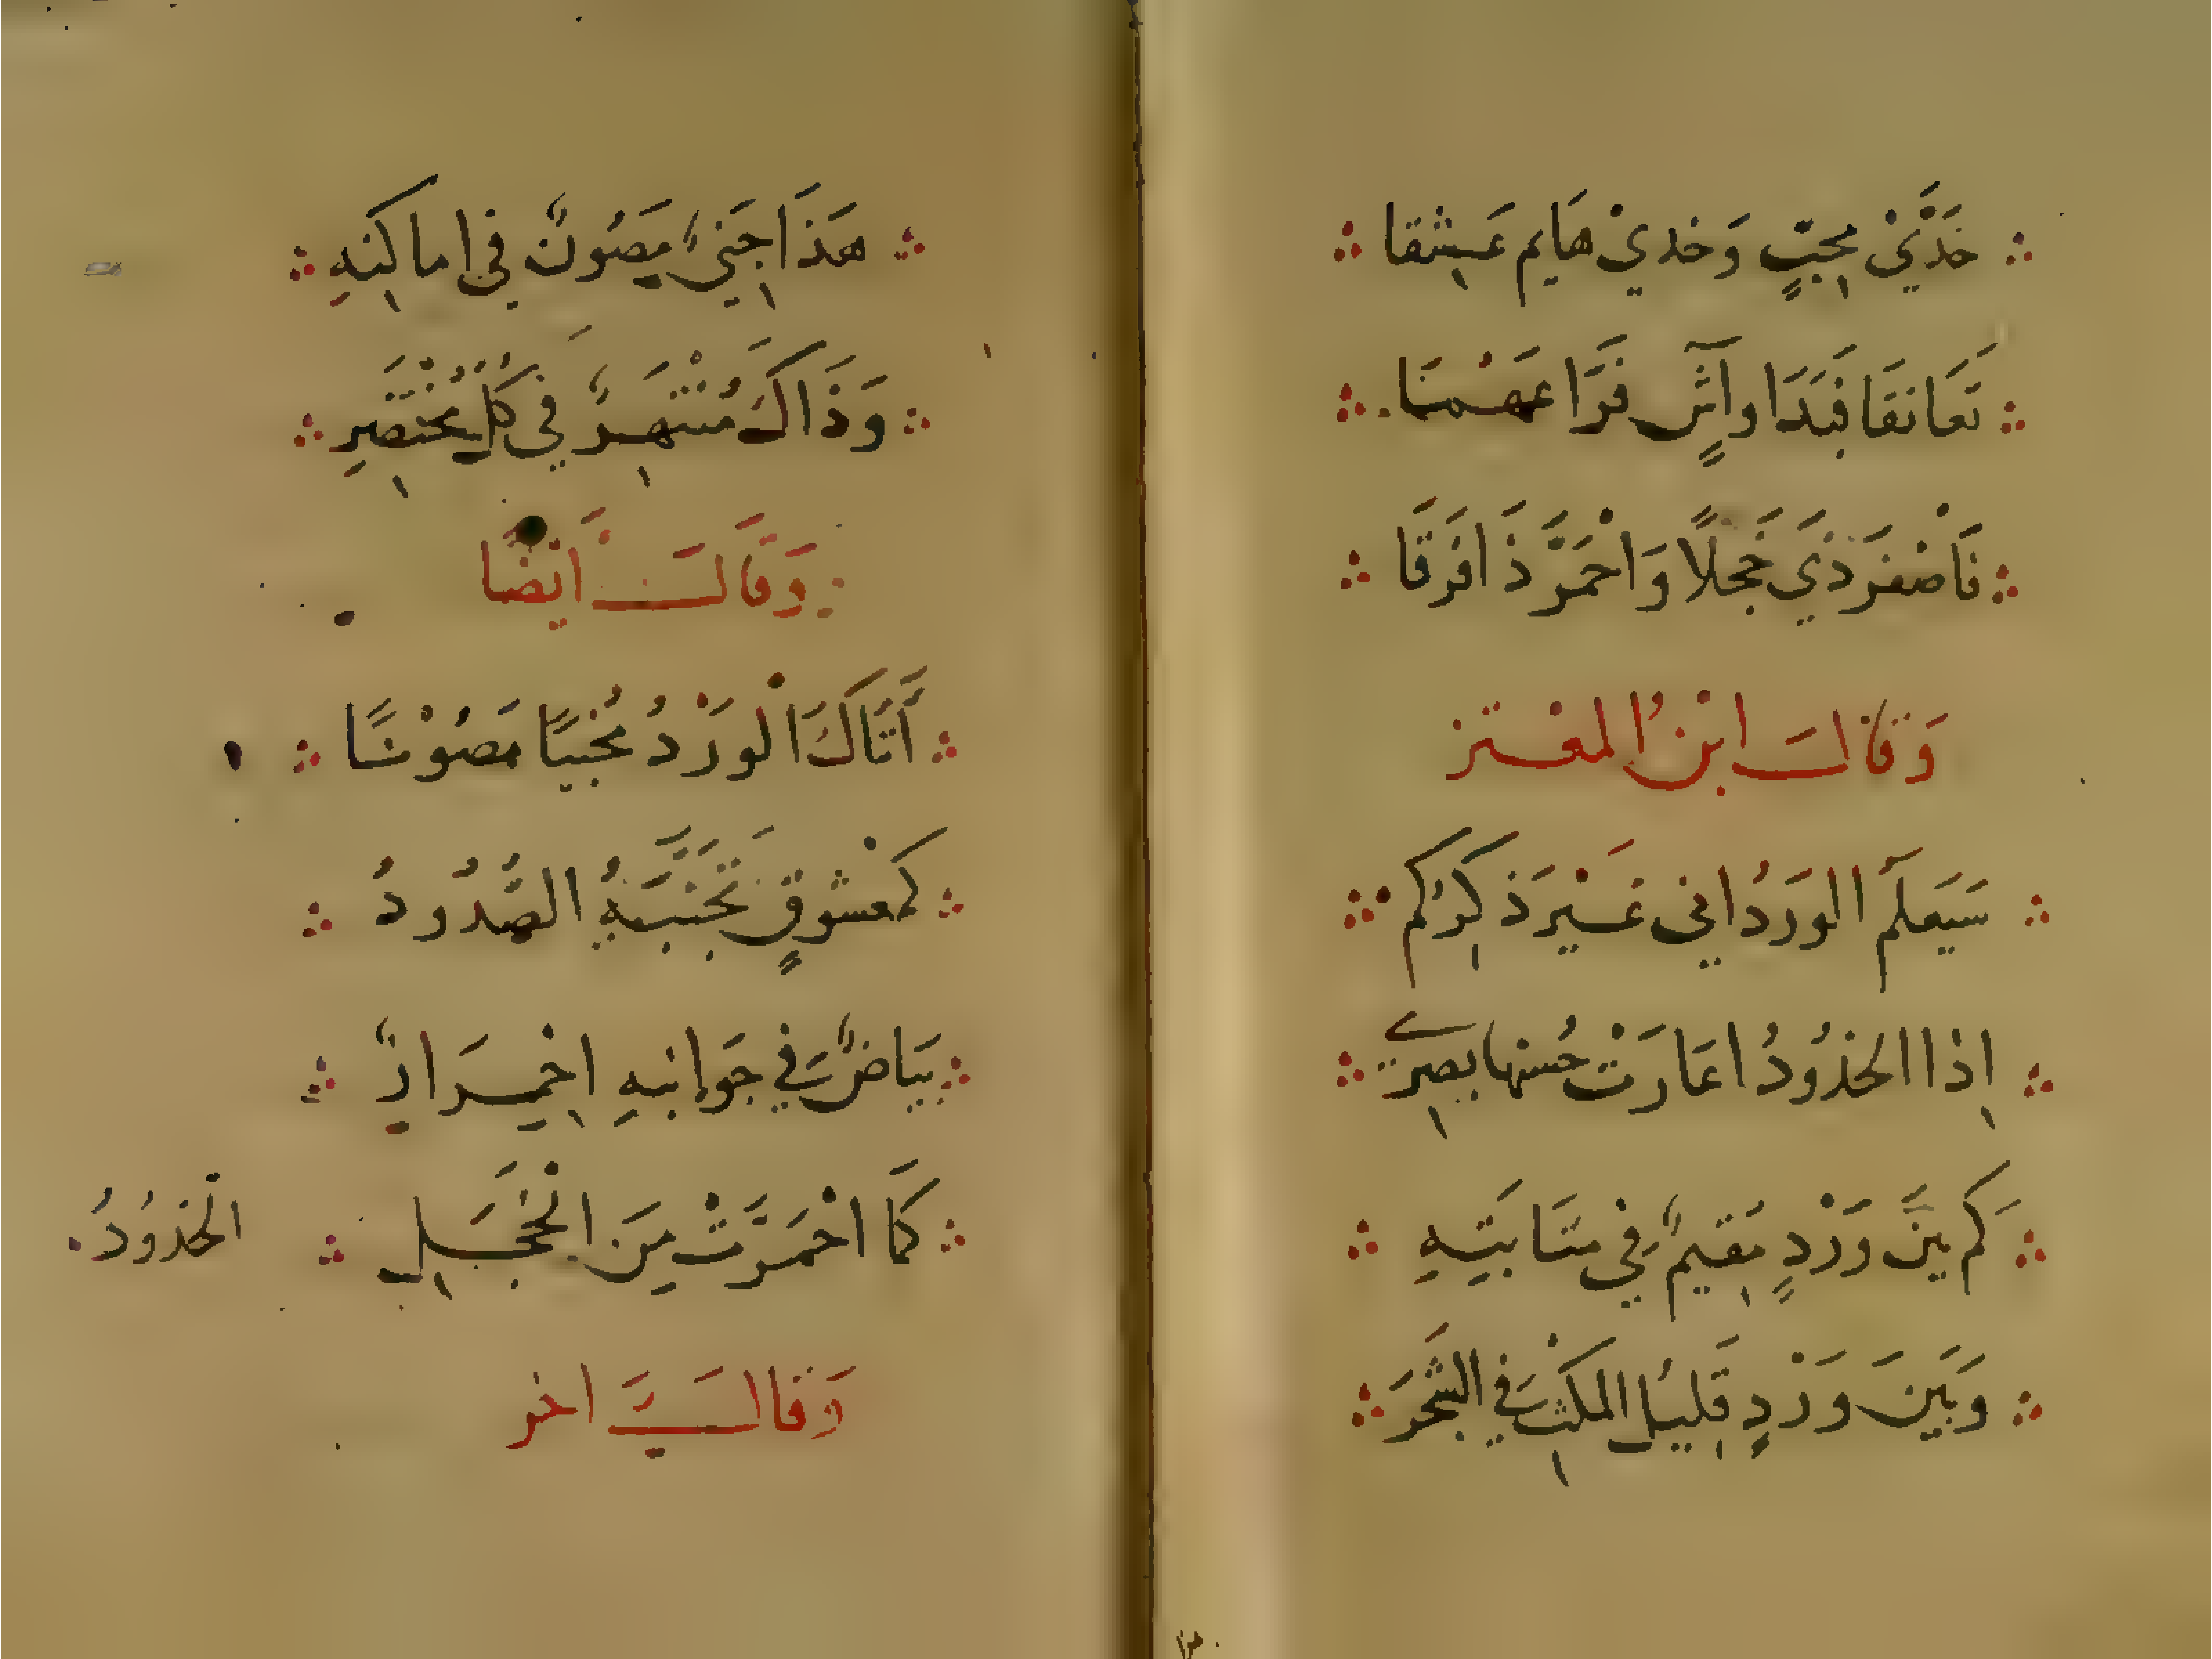 خَدَّيْ محِبٍّ وَخديْ هَايم عَشِقا
تَعَانقَا فَبَدَا واَشٍ فَرَّاعَهُمَا
فَأصْفَرَذي خَجَلًا وَاحْمَرَّ ذَافَرَقَا
وَقَالَ ابْنُ المعْتز
سَيَعلَمَ الورَدُ اني غَيْرَ ذَاكِرُكم
اِذا الخدُودُ اعَارَتْ حُسنها بصِرَي
كَم بينَّ وَرْدٍ مُقِيمٌ فِي مَنَابتِهِ
وَبَينَ وَرْدٍ قَلِيلُ المكْثِ فَي الشَّجَرَ
هَذَا جَنِيٌ مَصُونٌ فِي اماكِنهِ
وَذَاكَ مُنْتَهِرٌ فِي كُلِّ مُخْتَصَرِ
وَقَالَ أَيْضًا
أَتَاكَ الْورْدُ مُخْبيًا مَصُوْنًا
كَمعْشوقٍ تَجَنَّبَهُ الصُّدُودُ
بَيَاضٌ فِي جَوَانبهِ احْمِرَارٌ
كَمَا احْمَرَّتْ مِنَ الْخَجَلِ
الْخدُودُ
وَقالَ اخر
٣٠